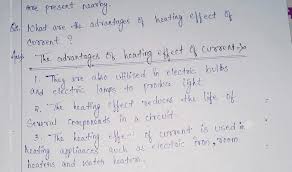 are present nearby.
Qs. What are the advantages of heating effect of
current ?
Ans. The advantages of heating effect of current:-
1. They are also utilised in electric bulbs
and electric lamps to produce light.
2. The heating effect reduces the life of
several components in a circuit.
3. The heating effect of current is used in
heating appliances such as electric iron, room
heaters and water heaters.